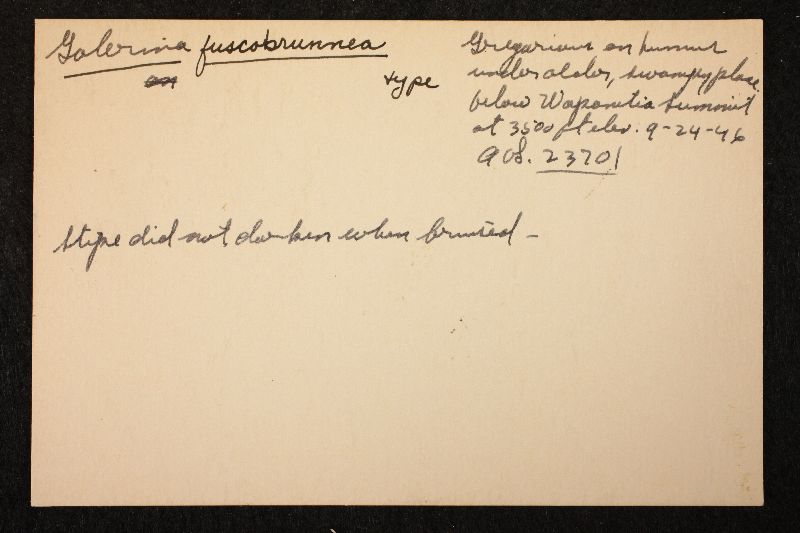 Galerina fuscobrunnea
type
Gregarious on humus
under alder, swampy place
below Wapanitia Summit
at 3500 ft elev. 9-24-46
23701
Stipe did not darken when bruised -